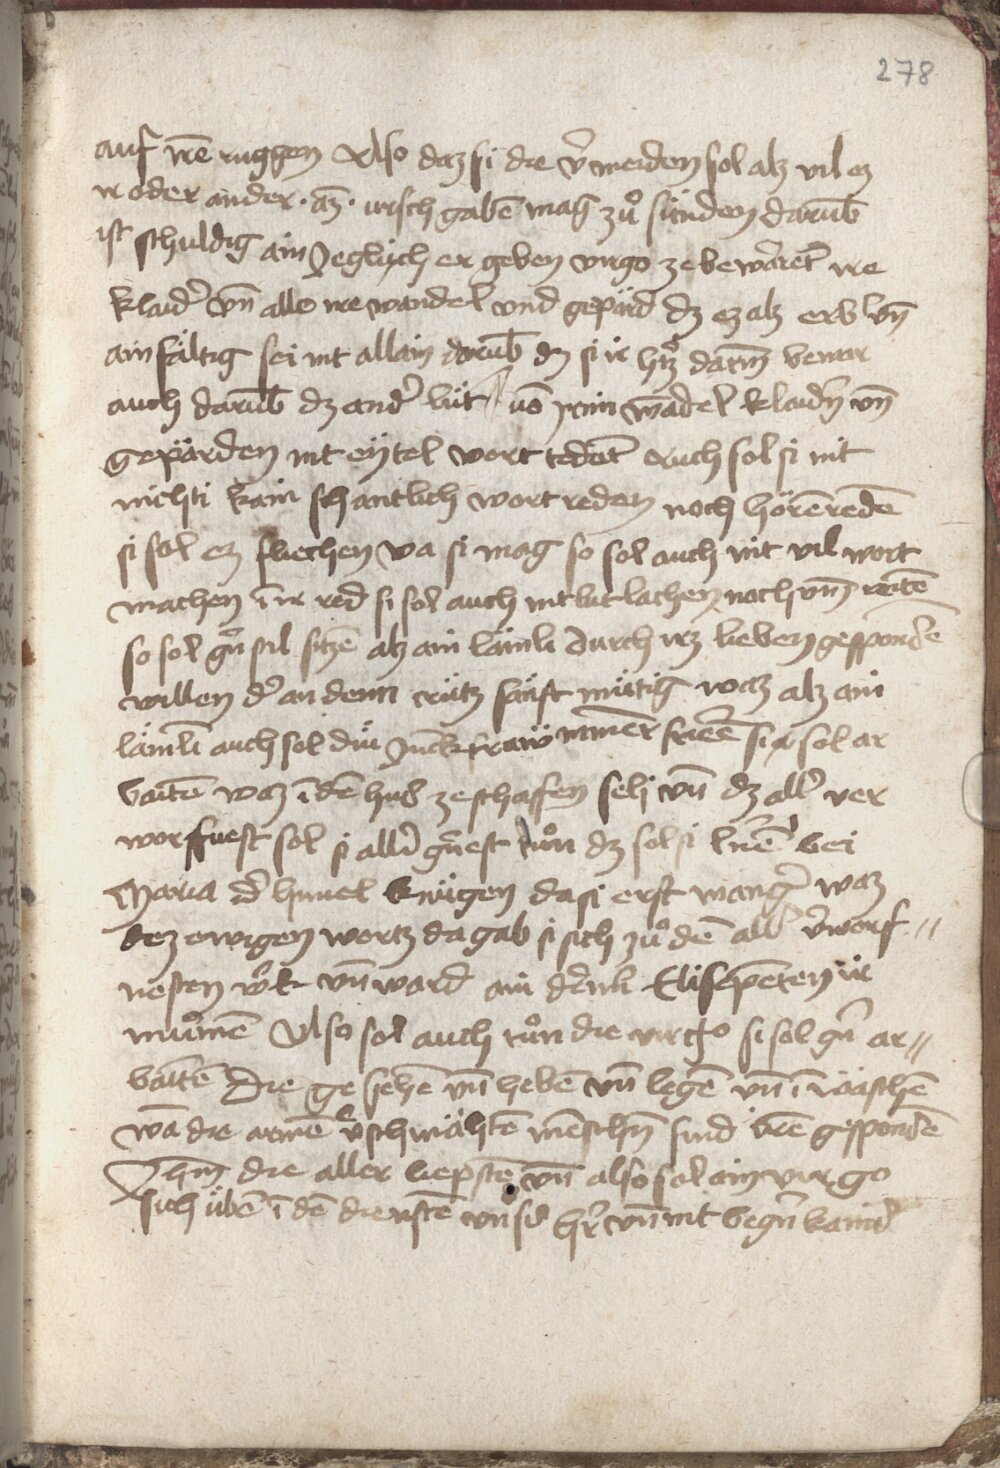 278
auf irē ruggen Also daz si die v̄meiden sol alz vil ez
ir oder ander · aīz · ursach gabē mag zů sünden darūb
ist schuldig ain Jeglich er geben virgo ze bewärēt ire
klaid̄ vn̄ alle ire wandel vnd gepärd dz ez alz erb vn̄
ainfältig sei nit allain darūb dz si ir h̄tz darīn bewar
auch darūb dz and̄ lüt vō irm wādel klaid̄n vn̄
gepärden nit eytel wort redēt Auch sol si nit
nichti kain schantlich wort reden noch hörē redē
si sol ez fliechen va si mag so sol auch nit vil wort
machen ī ir red si sol auch nit lut lachen noch vm̄
so sol ḡn stil sitzē alz ain lämli durch irz lieben gespondē
willen d̄ an dem crütz sänft mütig waz alz ain
lämli auch sol diü Junckfraw nimer si sol ar
baitē waz ī dē hus ze schaffen seij vn̄ dz all̄ ver
worfnest sol si all̄ ḡnest tůn dz sol si l̄nē bei
Maria d̄ himel künigen da si erst wanḡ waz
dez ewigen wortz da gab si sich zů dē all̄ v̄worf〃
nesten w̄k vn̄ ward ain d̄nli Elisepeten ir
můmē Also sol auch tůn die virgo si sol ḡn ar〃
baitē die ge sehē vn̄ hebē vn̄ legē vn̄ ī wäschē
wā die armē v̄schmähtē mēschn̄ sind irē gespondē
Jh̄m die aller liepstē vn̄ also sol ain virgo
sich übē ī dē dienstē vn̄s h̄r vn̄ nit beḡn kain